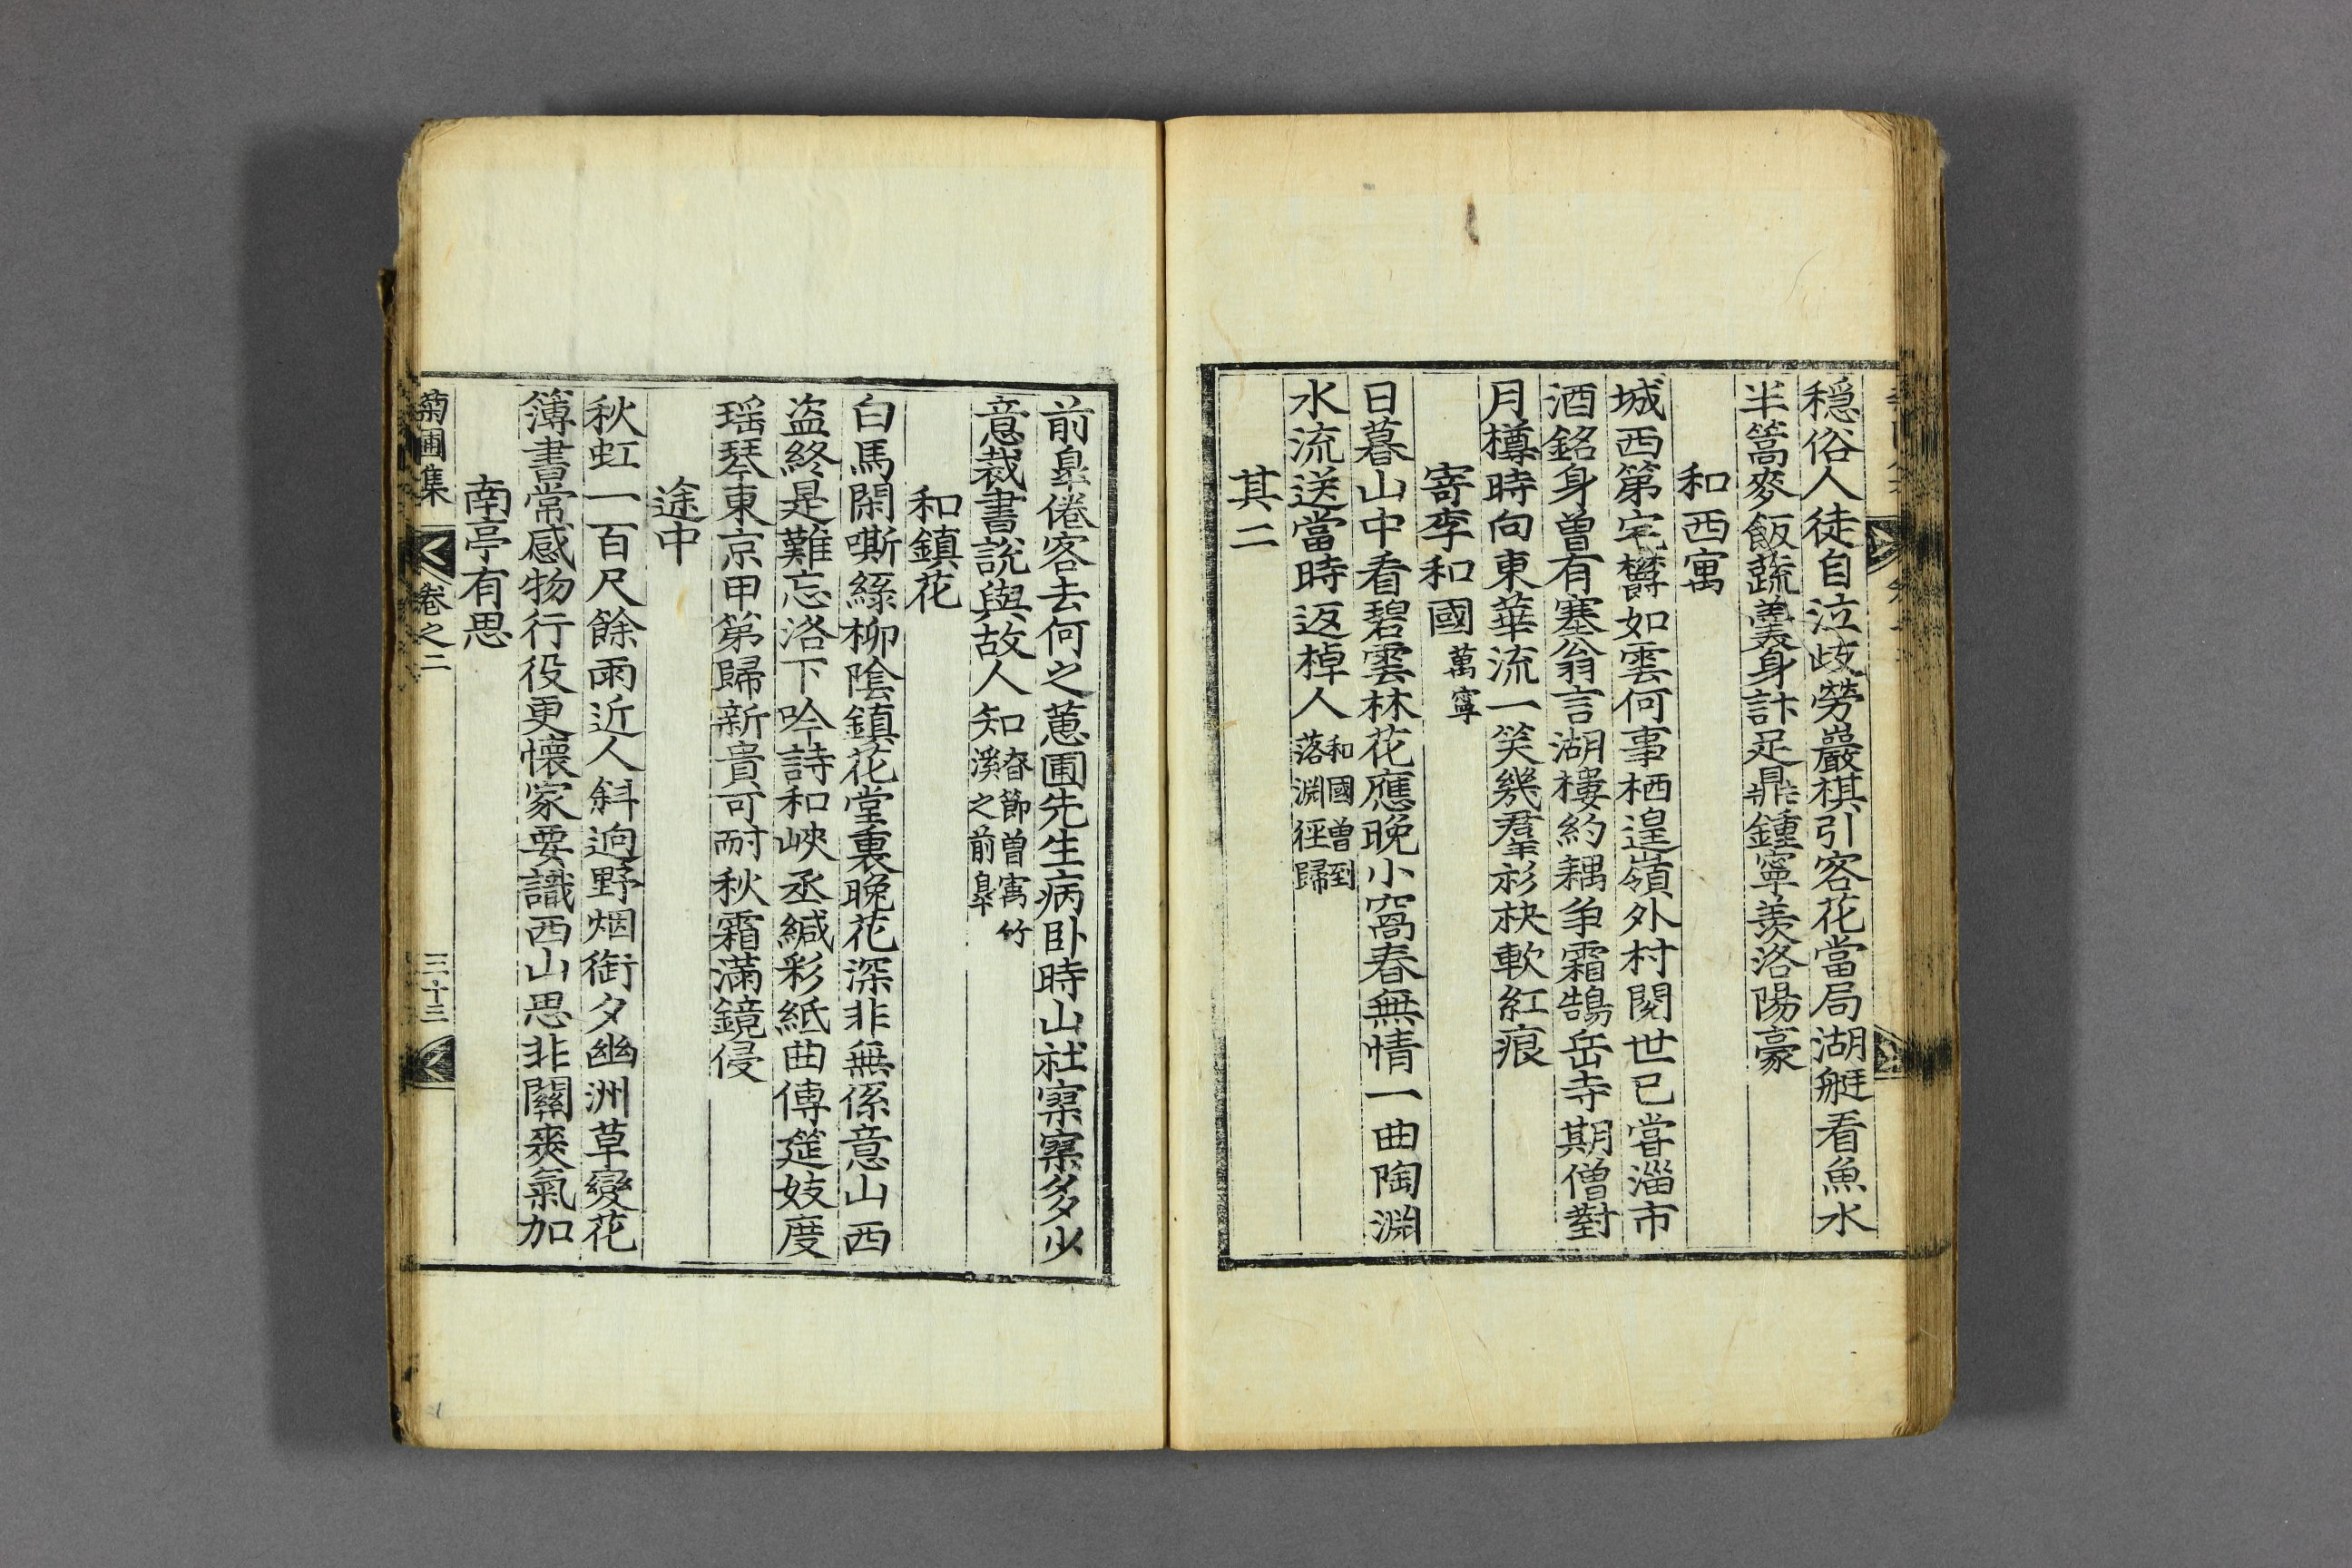 穩俗人徒自泣歧勞巖棋引客花當局湖艇看魚水
半篙麥飯蔬羹身計足鼎鍾寧羨洛陽豪
和西寓
城西第宅欝如雲何事栖遑嶺外村閱世已甞淄市
酒銘身曾有塞翁言湖樓約耦争霜鵠岳寺期僧對
月樽時向東華流一笑幾羣衫袂軟紅痕
寄李和國萬寧
日暮山中看碧雲林花應晚小窩春無情一曲陶淵
水流送當時返棹人和國曾到落淵徑歸
其二
前皐倦客去何之蕙圃先生病卧時山社寀寀多少
意裁書說與故人知春節曾寓竹溪之前皐
和鎮花
白馬閑嘶綠柳陰鎮花堂裏晚花深非無係意山西
盗終是難忘洛下吟詩和峽丞緘彩紙曲傳筵妓度
瑶琴東京甲第歸新貴可耐秋霜滿鏡侵
途中
秋虹一百尺餘雨近人斜逈野烟銜夕幽洲草變花
簿書常感物行役更懷家要識西山思非關爽氣加
南亭有思
菊圃集 卷之二 三十三